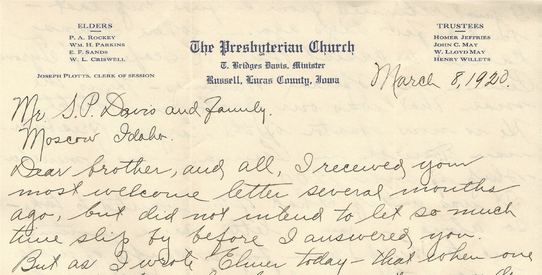 ELDERS
P. A. ROCKEY
WM. H. PARKINS
E. F. SANDS
W. L. CRISWELL
JOSEPH PLOTTS, CLERK OF SESSION
The Presbyterian Church
T. Bridges Davis, Minister
Russell, Lucas County, Iowa
TRUSTEES
HOMER JEFFRIES
JOHN C. MAY
W. LLOYD MAY
HENRY WILLETS
March 8, 1920.
Mr. S. P. Davis and family.
Moscow Idaho.
Dear brother, and all, I received your
most welcome letter several months
ago, but did not intend to let so much
time slip by before I answered you.
But as I wrote Elmer today - that when one